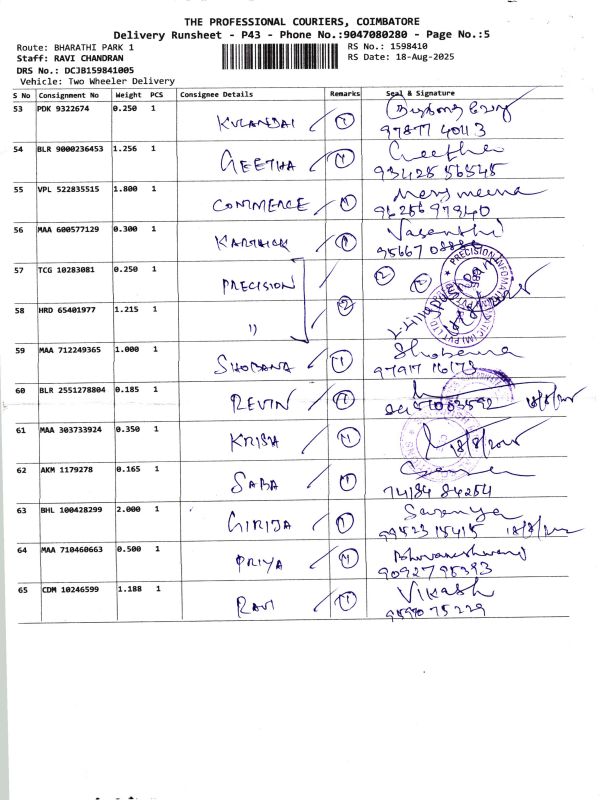 THE PROFESSIONAL COURIERS, COIMBATORE
Delivery Runsheet - P43 - Phone No.:9047080280 - Page No.:5
Route: BHARATHI PARK 1
RS No.: 1598410
Staff: RAVI CHANDRAN
RS Date: 18-Aug-2025
DRS No.: DCJB159841005
Vehicle: Two Wheeler Delivery
S No Consignment No Weight PCS Consignee Details Remarks Seal & Signature
53 PDK 9322674 0.250 1 KULANDAI
97877 40113
54 BLR 9000236453 1.256 1 GEETHA Geetha
93425 56545
55 VPL 522835515 1.800 1 COMMERCE Mary meena
96266 97940
56 MAA 600577129 0.300 1 KARTHICK Vasanthi
95667
57 TCG 10283081 0.250 1 PRECISION 2
58 HRD 65401977 1.215 1 " 2
59 MAA 712249365 1.000 1 SHOBANA Shobana
97917 16173
60 BLR 2551278804 0.185 1 REVIN
18/8/2025
61 MAA 303733924 0.350 1 KRISH 18/8/2025
62 AKM 1179278 0.165 1 SABA
74184 84254
63 BHL 100428299 2.000 1 GIRIJA Saranya
99523 15415 18/8/2025
64 MAA 710460663 0.500 1 PRIYA Bhuvaneshwari
90927 95393
65 CDM 10246599 1.188 1 RAVI Vikash
95970 75229